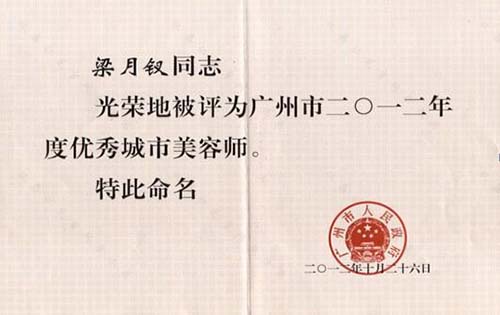 梁月钗同志
光荣地被评为广州市二〇一二年
度优秀城市美容师。
特此命名
广州市人民政府
二〇一二年十月二十六日